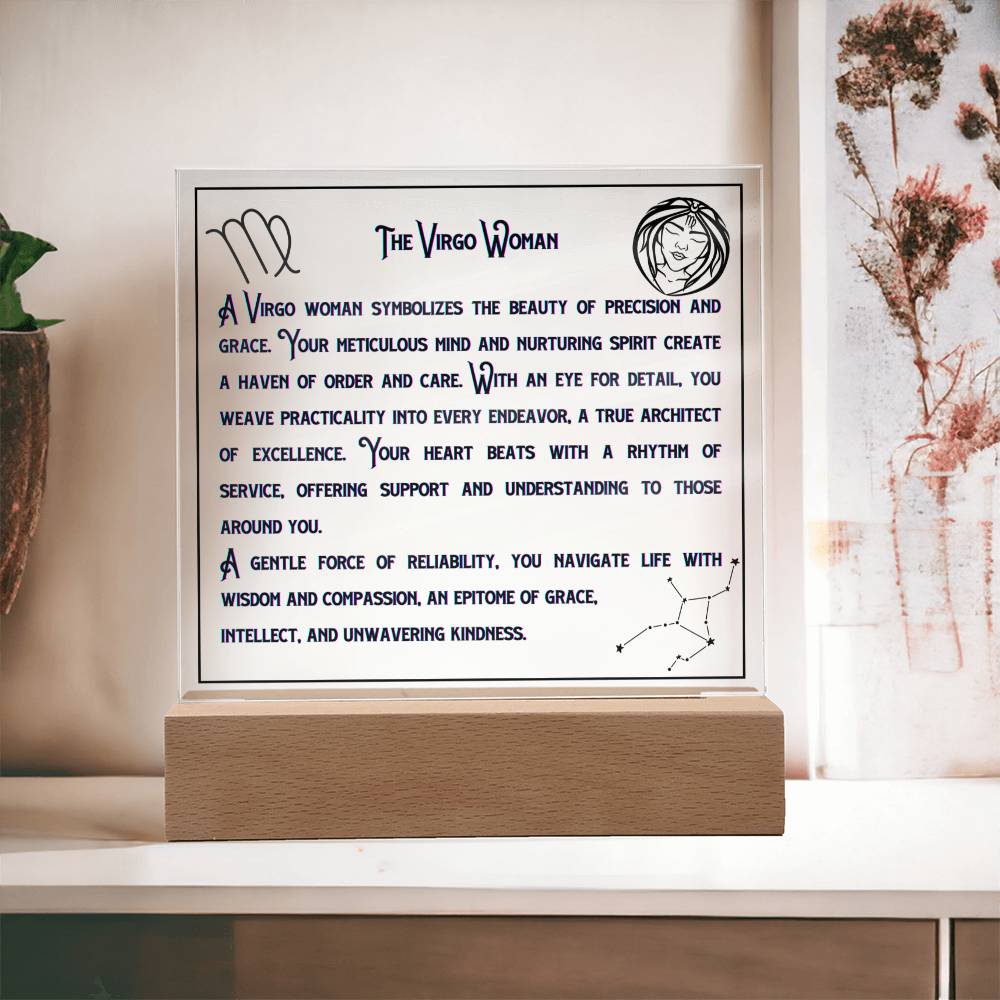 The Virgo Woman
A Virgo woman symbolizes the beauty of precision and
grace. Your meticulous mind and nurturing spirit create
a haven of order and care. With an eye for detail, you
weave practicality into every endeavor, a true architect
of excellence. Your heart beats with a rhythm of
service, offering support and understanding to those
around you.
A gentle force of reliability, you navigate life with
wisdom and compassion, an epitome of grace,
intellect, and unwavering kindness.